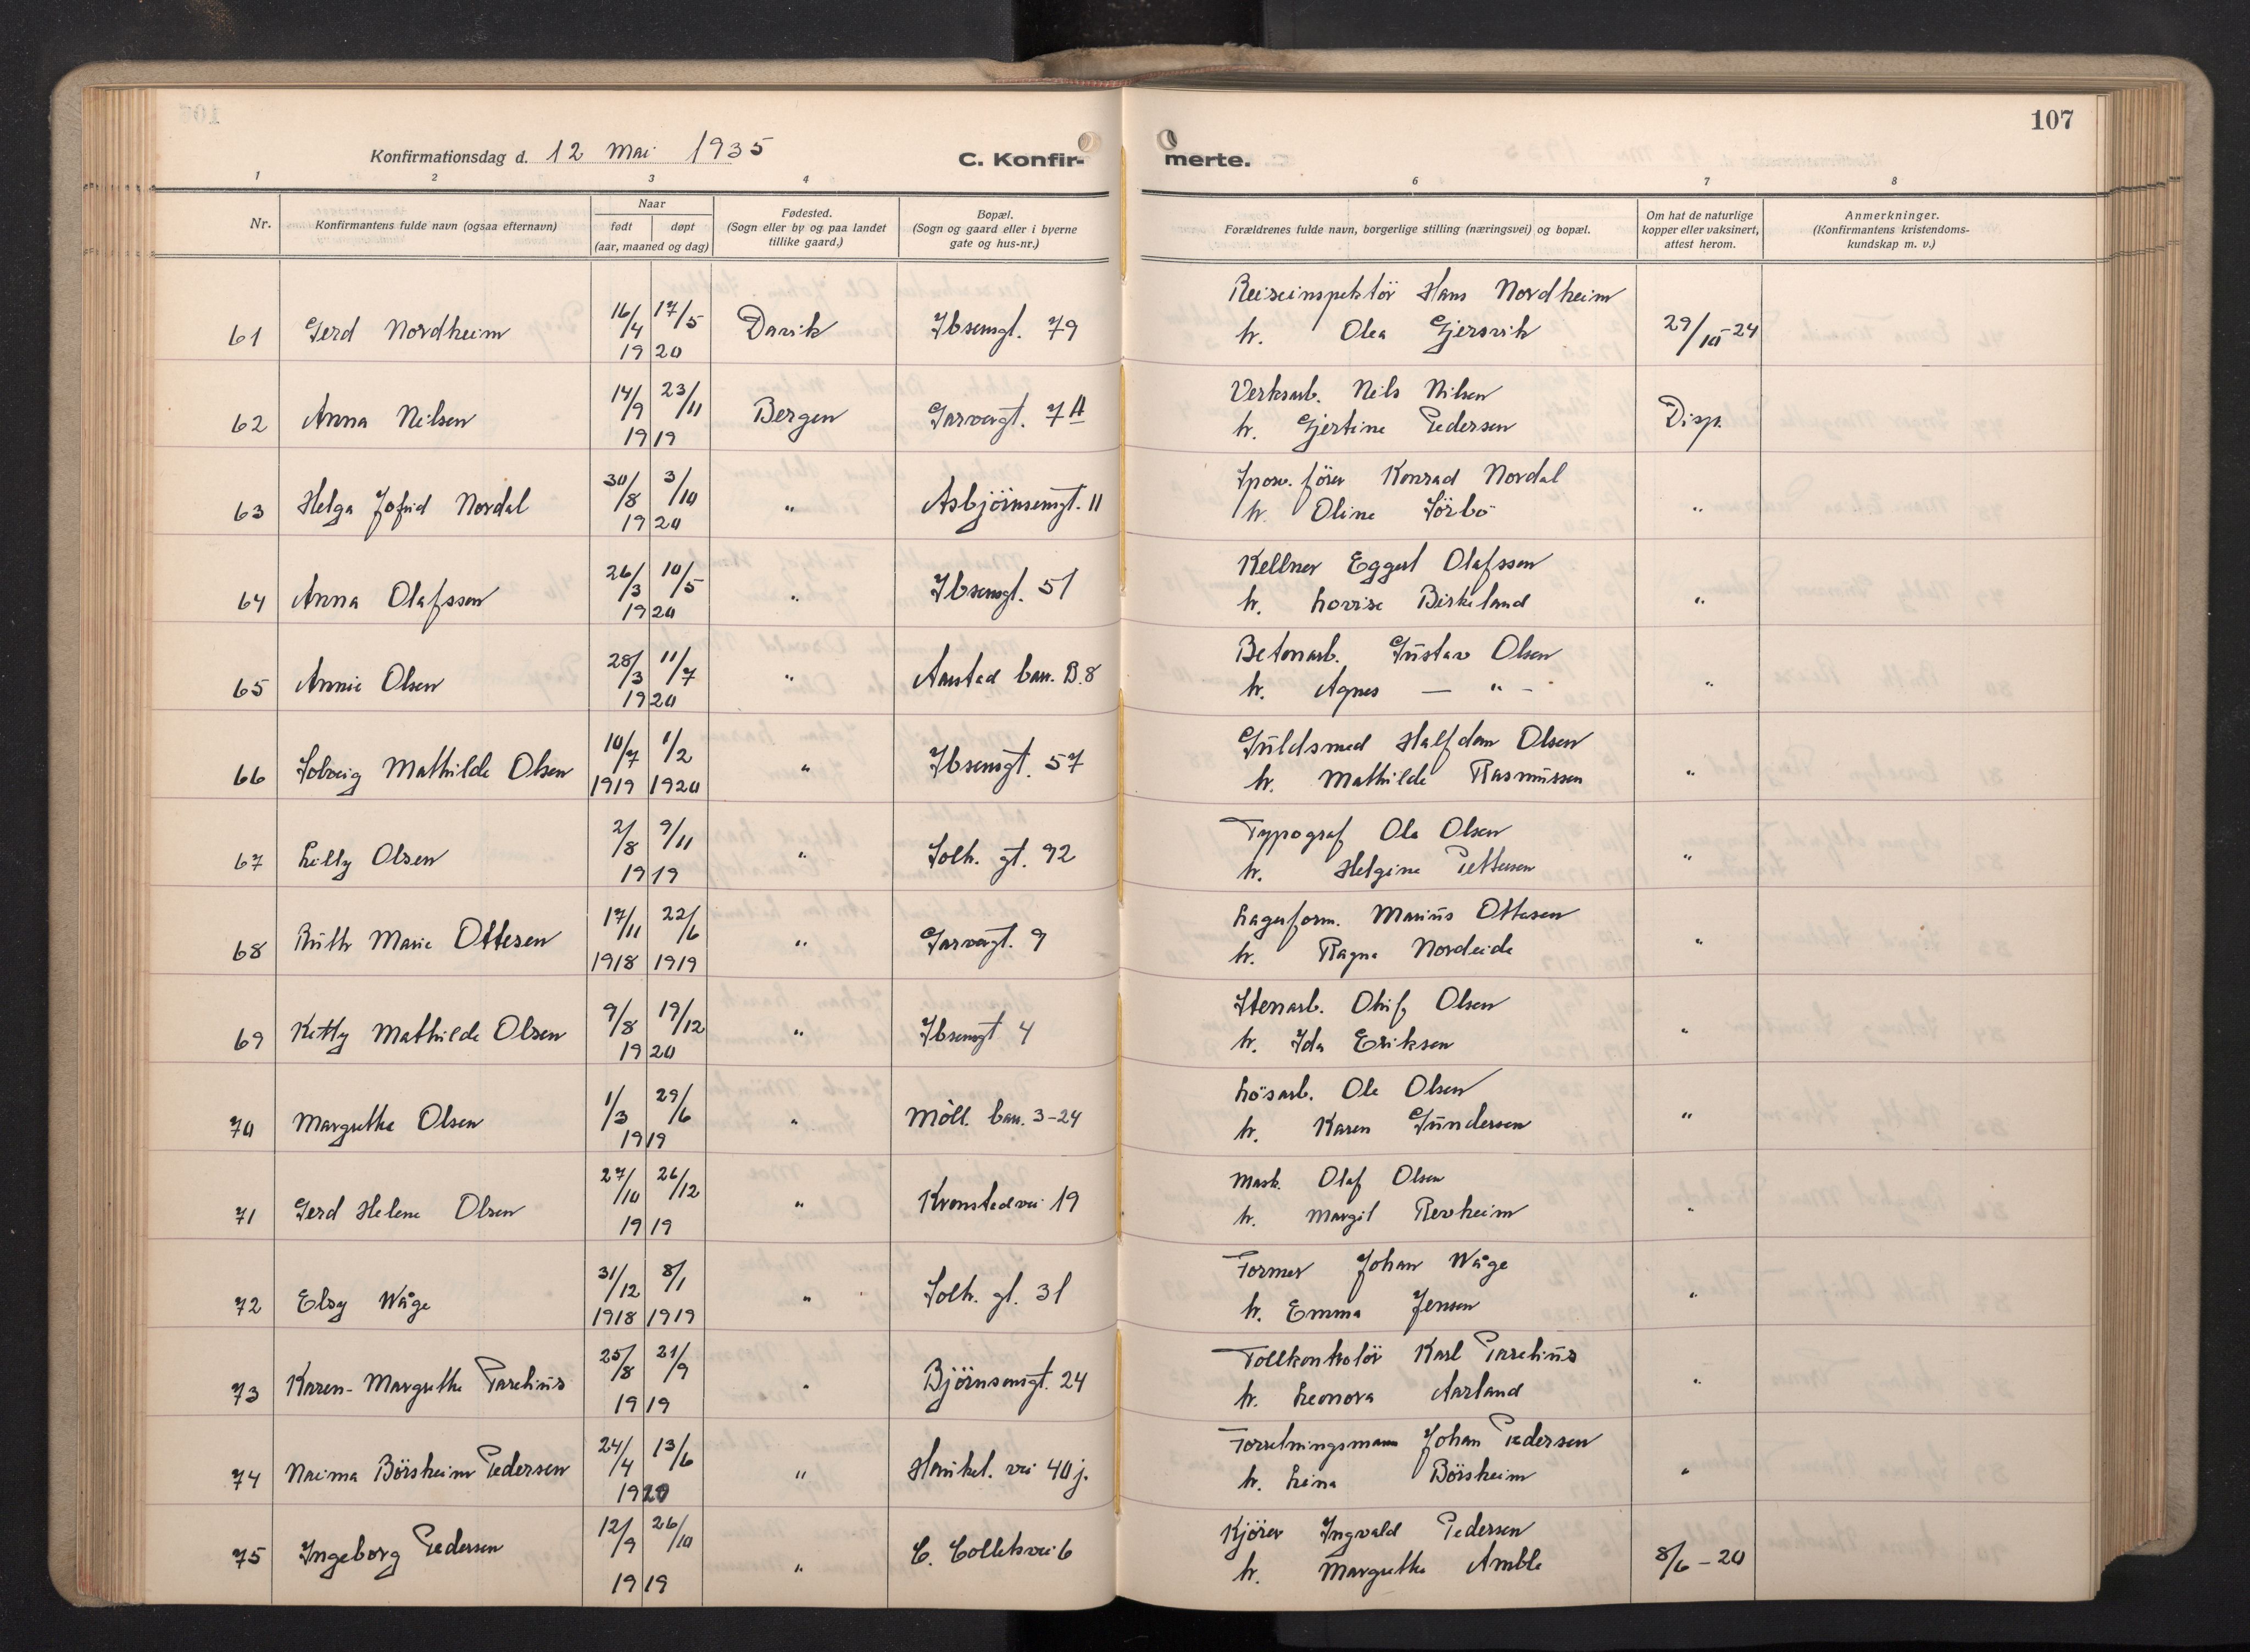 107
Konfirmationsdag d. 12 Mai 1935
C. Konfir-
merte.
1 2 3 4 6 7 8
Nr.
Konfirmantens fulde navn (ogsaa efternavn)
Naar
født døpt
(aar, maaned og dag)
Fødested.
(Sogn eller by og paa landet
tillike gaard.)
Bopæl.
(Sogn og gaard eller i byerne
gate og hus-nr.)
Forældrenes fulde navn, borgerlige stilling (næringsvei) og bopæl.
Om hat de naturlige
kopper eller vaksinert,
attest herom.
Anmerkninger.
(Konfirmantens kristendoms-
kundskap m. v.)
Reiseinspektör Hans Nordheim
61 Gerd Nordheim 16/4 17/5 1920 Davik Ibsensgt. 79 h. Olea Gjersvik 29/10-24
Verksarb. Nils Nilsen
62 Anna Nilsen 14/9 23/11 1919 Bergen Garvergt. 7A h. Gjertine Pedersen Disp.
Sporv. förer Konrad Nordal
63 Helga Jofrid Nordal 30/8 3/10 1920 " Asbjörnsensgt. 11 h. Oline Sörbö "
Kellner Eggert Olafsson
64 Anna Olafsson 26/3 10/5 1920 " Ibsensgt. 51 h. Lovise Birkeland "
Betonarb. Gustav Olsen
65 Annie Olsen 28/3 11/7 1920 " Aarstad bar. B.8 h. Agnes — " — "
Guldsmed Halfdan Olsen
66 Solveig Mathilde Olsen 10/7 1919 1/2 1920 " Ibsensgt. 57 h. Mathilde Rasmussen "
Typograf Ole Olsen
67 Lilly Olsen 2/8 9/11 1919 " Solh. gt. 92 h. Helgine Pettersen "
Lagerform. Marius Ottesen
68 Ruth Marie Ottesen 17/11 1918 22/6 1919 " Garvergt. 9 h. Ragna Nordeide "
Stenarb. Oluf Olsen
69 Kitty Mathilde Olsen 9/8 19/12 1920 " Ibsensgt 4 h. Ida Eriksen "
Lösarb. Ole Olsen
70 Margrethe Olsen 1/3 29/6 1919 " Möll. bar. 3-24 h. Karen Gundersen "
Mask. Olaf Olsen
71 Gerd Helene Olsen 27/10 26/12 1919 " Kronstadvei 19 h. Margit Revheim "
Former Johan Wåge
72 Elsy Wåge 31/12 1918 8/1 1919 " Solh. gt. 31 h. Emma Jensen "
Tollkontrolör Karl Parelius
73 Karen-Margrethe Parelius 25/8 21/9 1919 " Björnsonsgt. 24 h. Leonora Aarland "
Forretningsmann Johan Pedersen
74 Naima Börsheim Pedersen 24/4 13/6 1920 " Haukel. vei 40 j. h. Lina Börsheim "
Kjörer Ingvald Pedersen
75 Ingeborg Pedersen 12/9 26/10 1919 " C. Colletsvei 6 h. Margrethe Amble 8/6-20